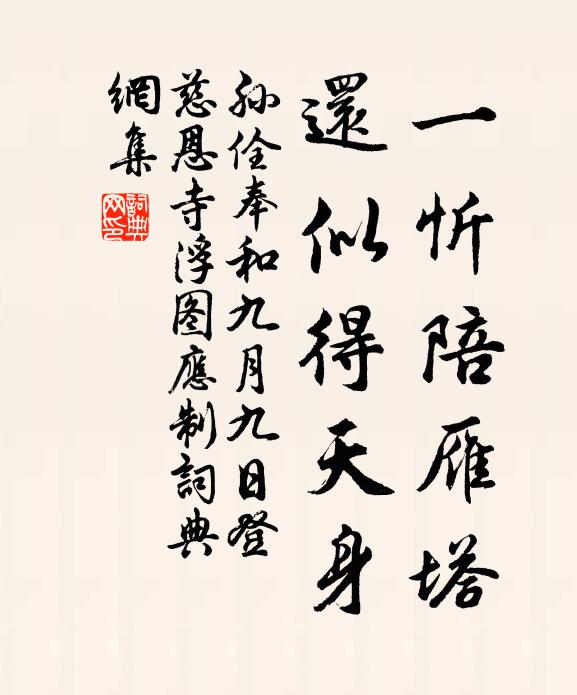 一忻陪雁塔
還似得天身
孙佺奉和九月九日登
慈恩寺浮图應制詞典
網集
詞典网印